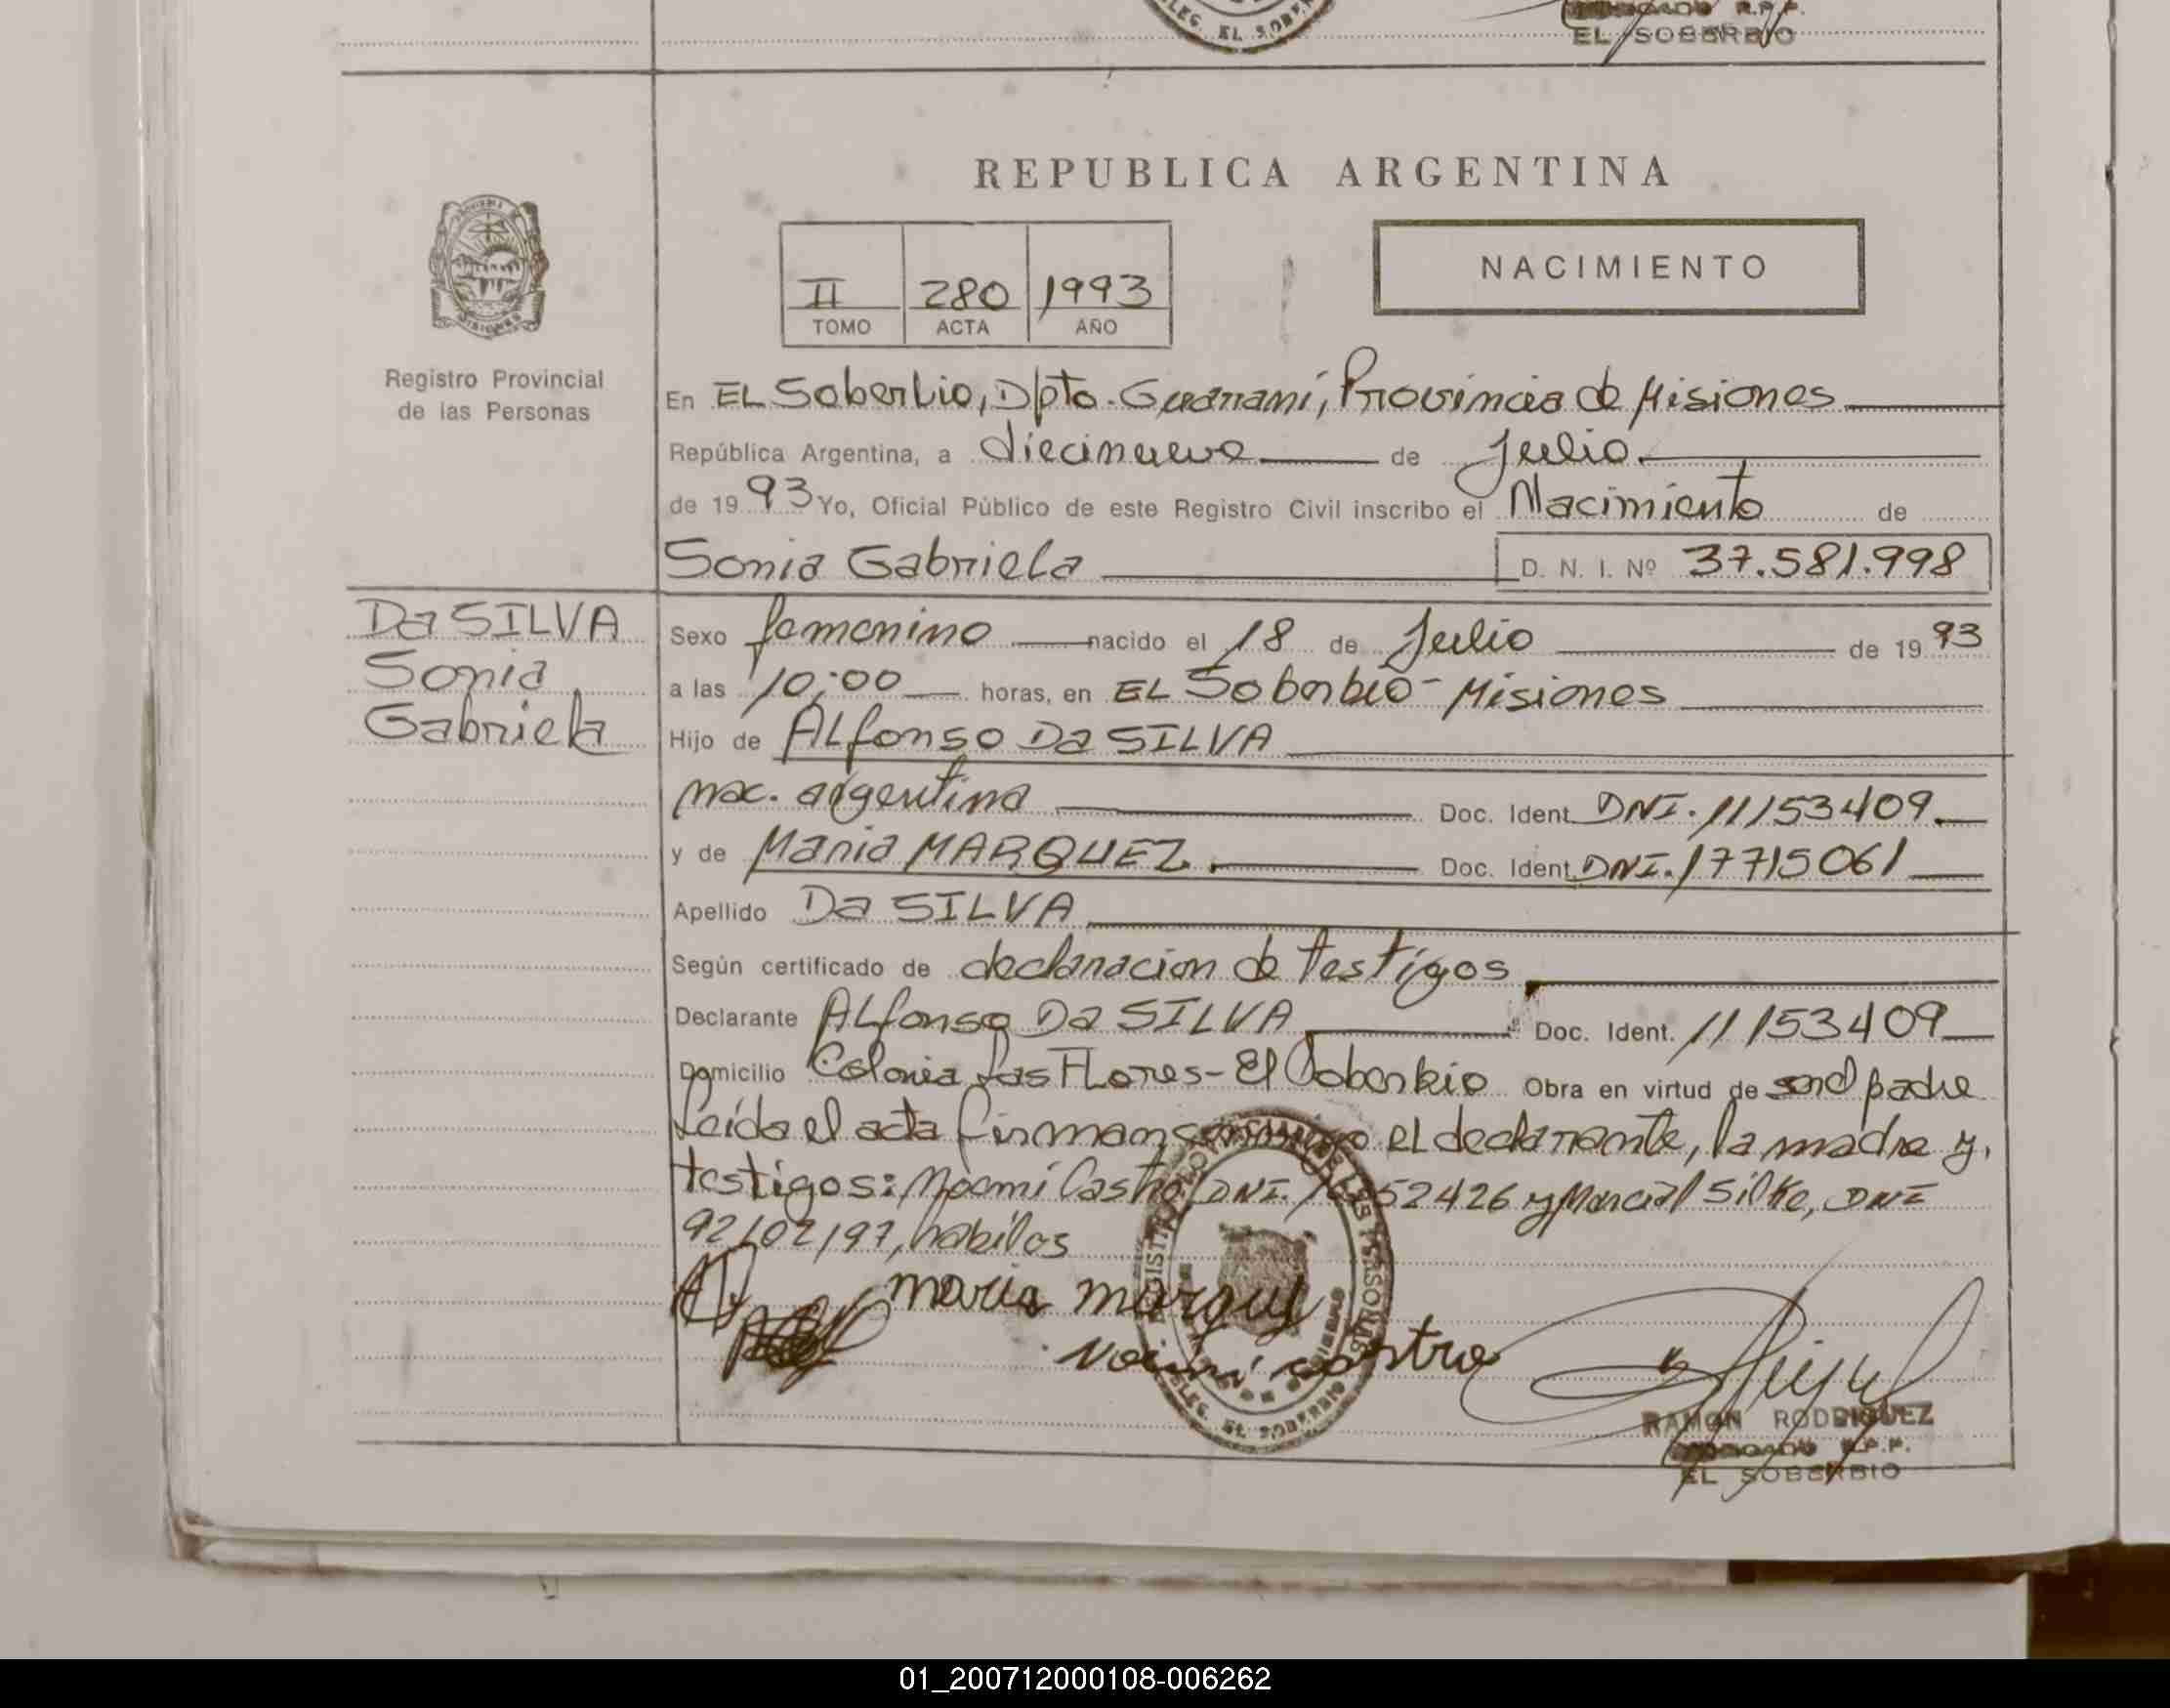 DELEG. EL SOBERBIO
R.P.P.
EL SOBERBIO
REPUBLICA ARGENTINA
NACIMIENTO
II 280 1993
TOMO ACTA AÑO
MISIONES
Registro Provincial
de las Personas
En EL Soberbio, Dpto. Guaraní, Provincia de Misiones
República Argentina, a diecinueve de Julio.
de 1993 Yo, Oficial Público de este Registro Civil inscribo el Nacimiento de
Sonia Gabriela D. N. I. Nº 37.581.998
Da SILVA
Sonia
Gabriela
Sexo femenino nacido el 18 de Julio de 1993
a las 10:00 horas, en EL Soberbio - Misiones
Hijo de ALfonso Da SILVA
nac. argentina Doc. Ident. DNI. 11153409.
y de Maria MARQUEZ. Doc. Ident. DNI. 17715061
Apellido Da SILVA
Según certificado de declaracion de testigos
Declarante ALfonso Da SILVA Doc. Ident. 11153409
Domicilio Colonia Las FLores - El Soberbio Obra en virtud de ser el padre
Leída el acta firman conmigo el declarante, la madre y
testigos: Noemí Castro, DNI. 52426 y Marcial Silke, DNI
92102197, habiles
maria marquez
Noemi castro
DELEG. EL SOBERBIO
RAMON RODRIGUEZ
R.P.P.
EL SOBERBIO
01_200712000108-006262